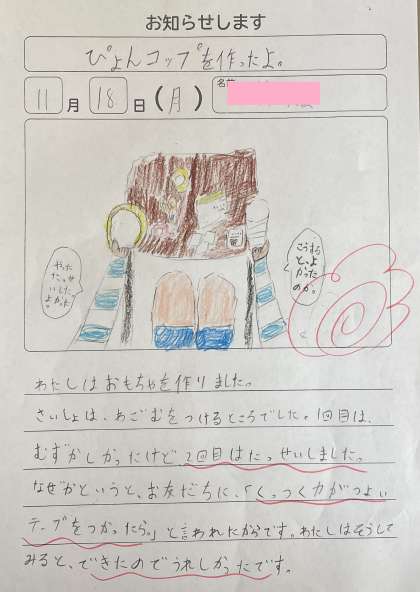 お知らせします
ぴょんコップを作ったよ。
11月18日(月)
名前
やった
たっせ
いした
よ。
こうする
と、よ
かった
のか。
わたしはおもちゃを作りました。
さいしょは、わごむをつけるところでした。1回目は、
むずかしかったけど2回目はたっせいしました。
なぜかというと、お友だちに、「くっつく力がつよい
テープをつかったら。」と言われたからです。わたしはそうして
みると、できたのでうれしかったです。